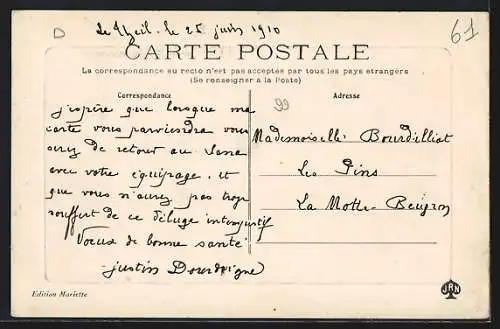 D
Le Theil. le 25 juin 1910
61
CARTE POSTALE
La correspondance au recto n'est pas acceptée par tous les pays étrangers
(Se renseigner à la Poste)
Correspondance
99
Adresse
J'espère que lorsque ma
carte vous parviendra vous
serez de retour au
avec votre équipage, et
que vous n'aurez pas trop
souffert de ce déluge intempestif
Voeux de bonne santé
Justin
Mademoiselle Bourdilliat
Les Pins
La Motte-Beuvron
Edition Mariette
JRN